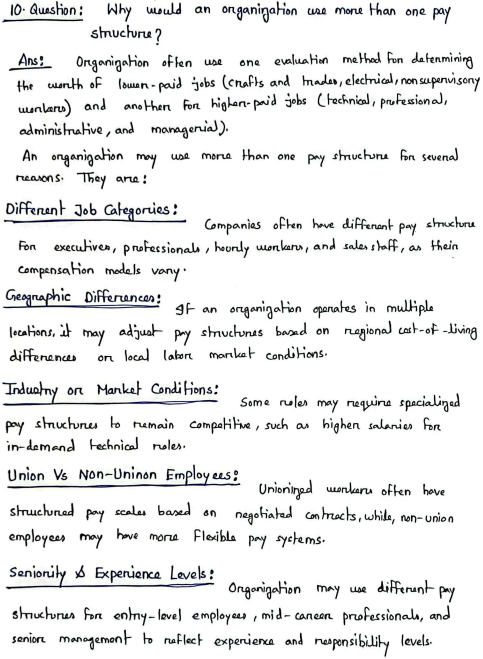 10. Question: Why would an organization use more than one pay
structure?
Ans: Organization often use one evaluation method for determining
the worth of lower-paid jobs (crafts and trades, electrical, nonsupervisory
workers) and another for higher-paid jobs (technical, professional,
administrative, and managerial).
An organization may use more than one pay structure for several
reasons. They are:
Different Job Categories:
Companies often have different pay structure
for executives, professionals, hourly workers, and sales staff, as their
compensation models vary.
Geographic Differences:
If an organization operates in multiple
locations, it may adjust pay structures based on regional cost-of-living
differences or local labor market conditions.
Industry or Market Conditions:
Some roles may require specialized
pay structures to remain competitive, such as higher salaries for
in-demand technical roles.
Union Vs Non-Uninon Employees:
Unionized workers often have
structured pay scales based on negotiated contracts, while, non-union
employees may have more flexible pay systems.
Seniority & Experience Levels:
Organization may use different pay
structures for entry-level employees, mid-career professionals, and
senior management to reflect experience and responsibility levels.